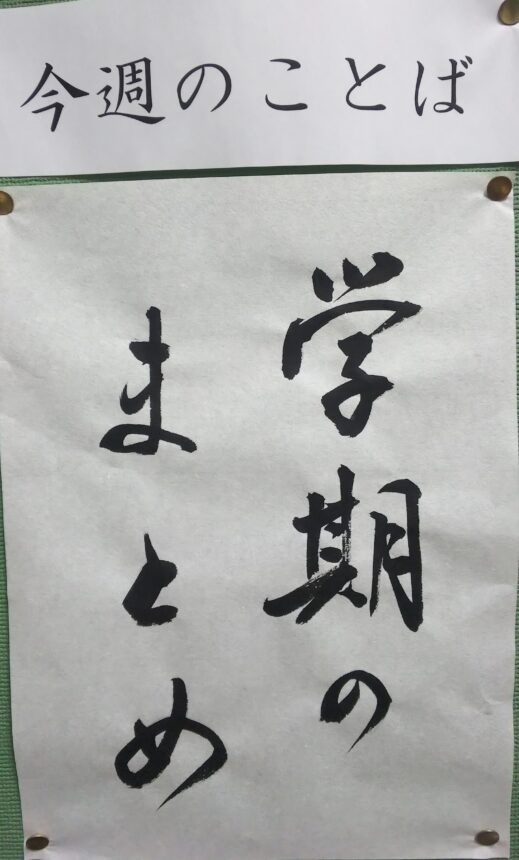 今週のことば
学期の
まとめ